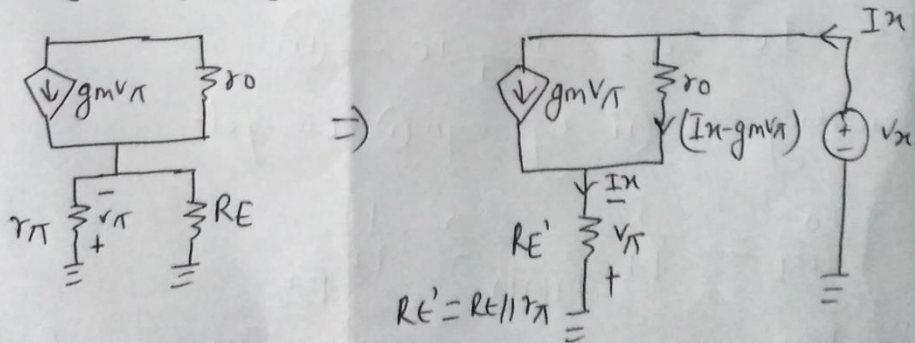 gmvπ
r0
rπ
-
vπ
+
RE
⇒
Ix
gmvπ
r0
(Ix-gmvπ)
+
-
vx
Ix
-
RE'
vπ
+
RE' = RE//rπ